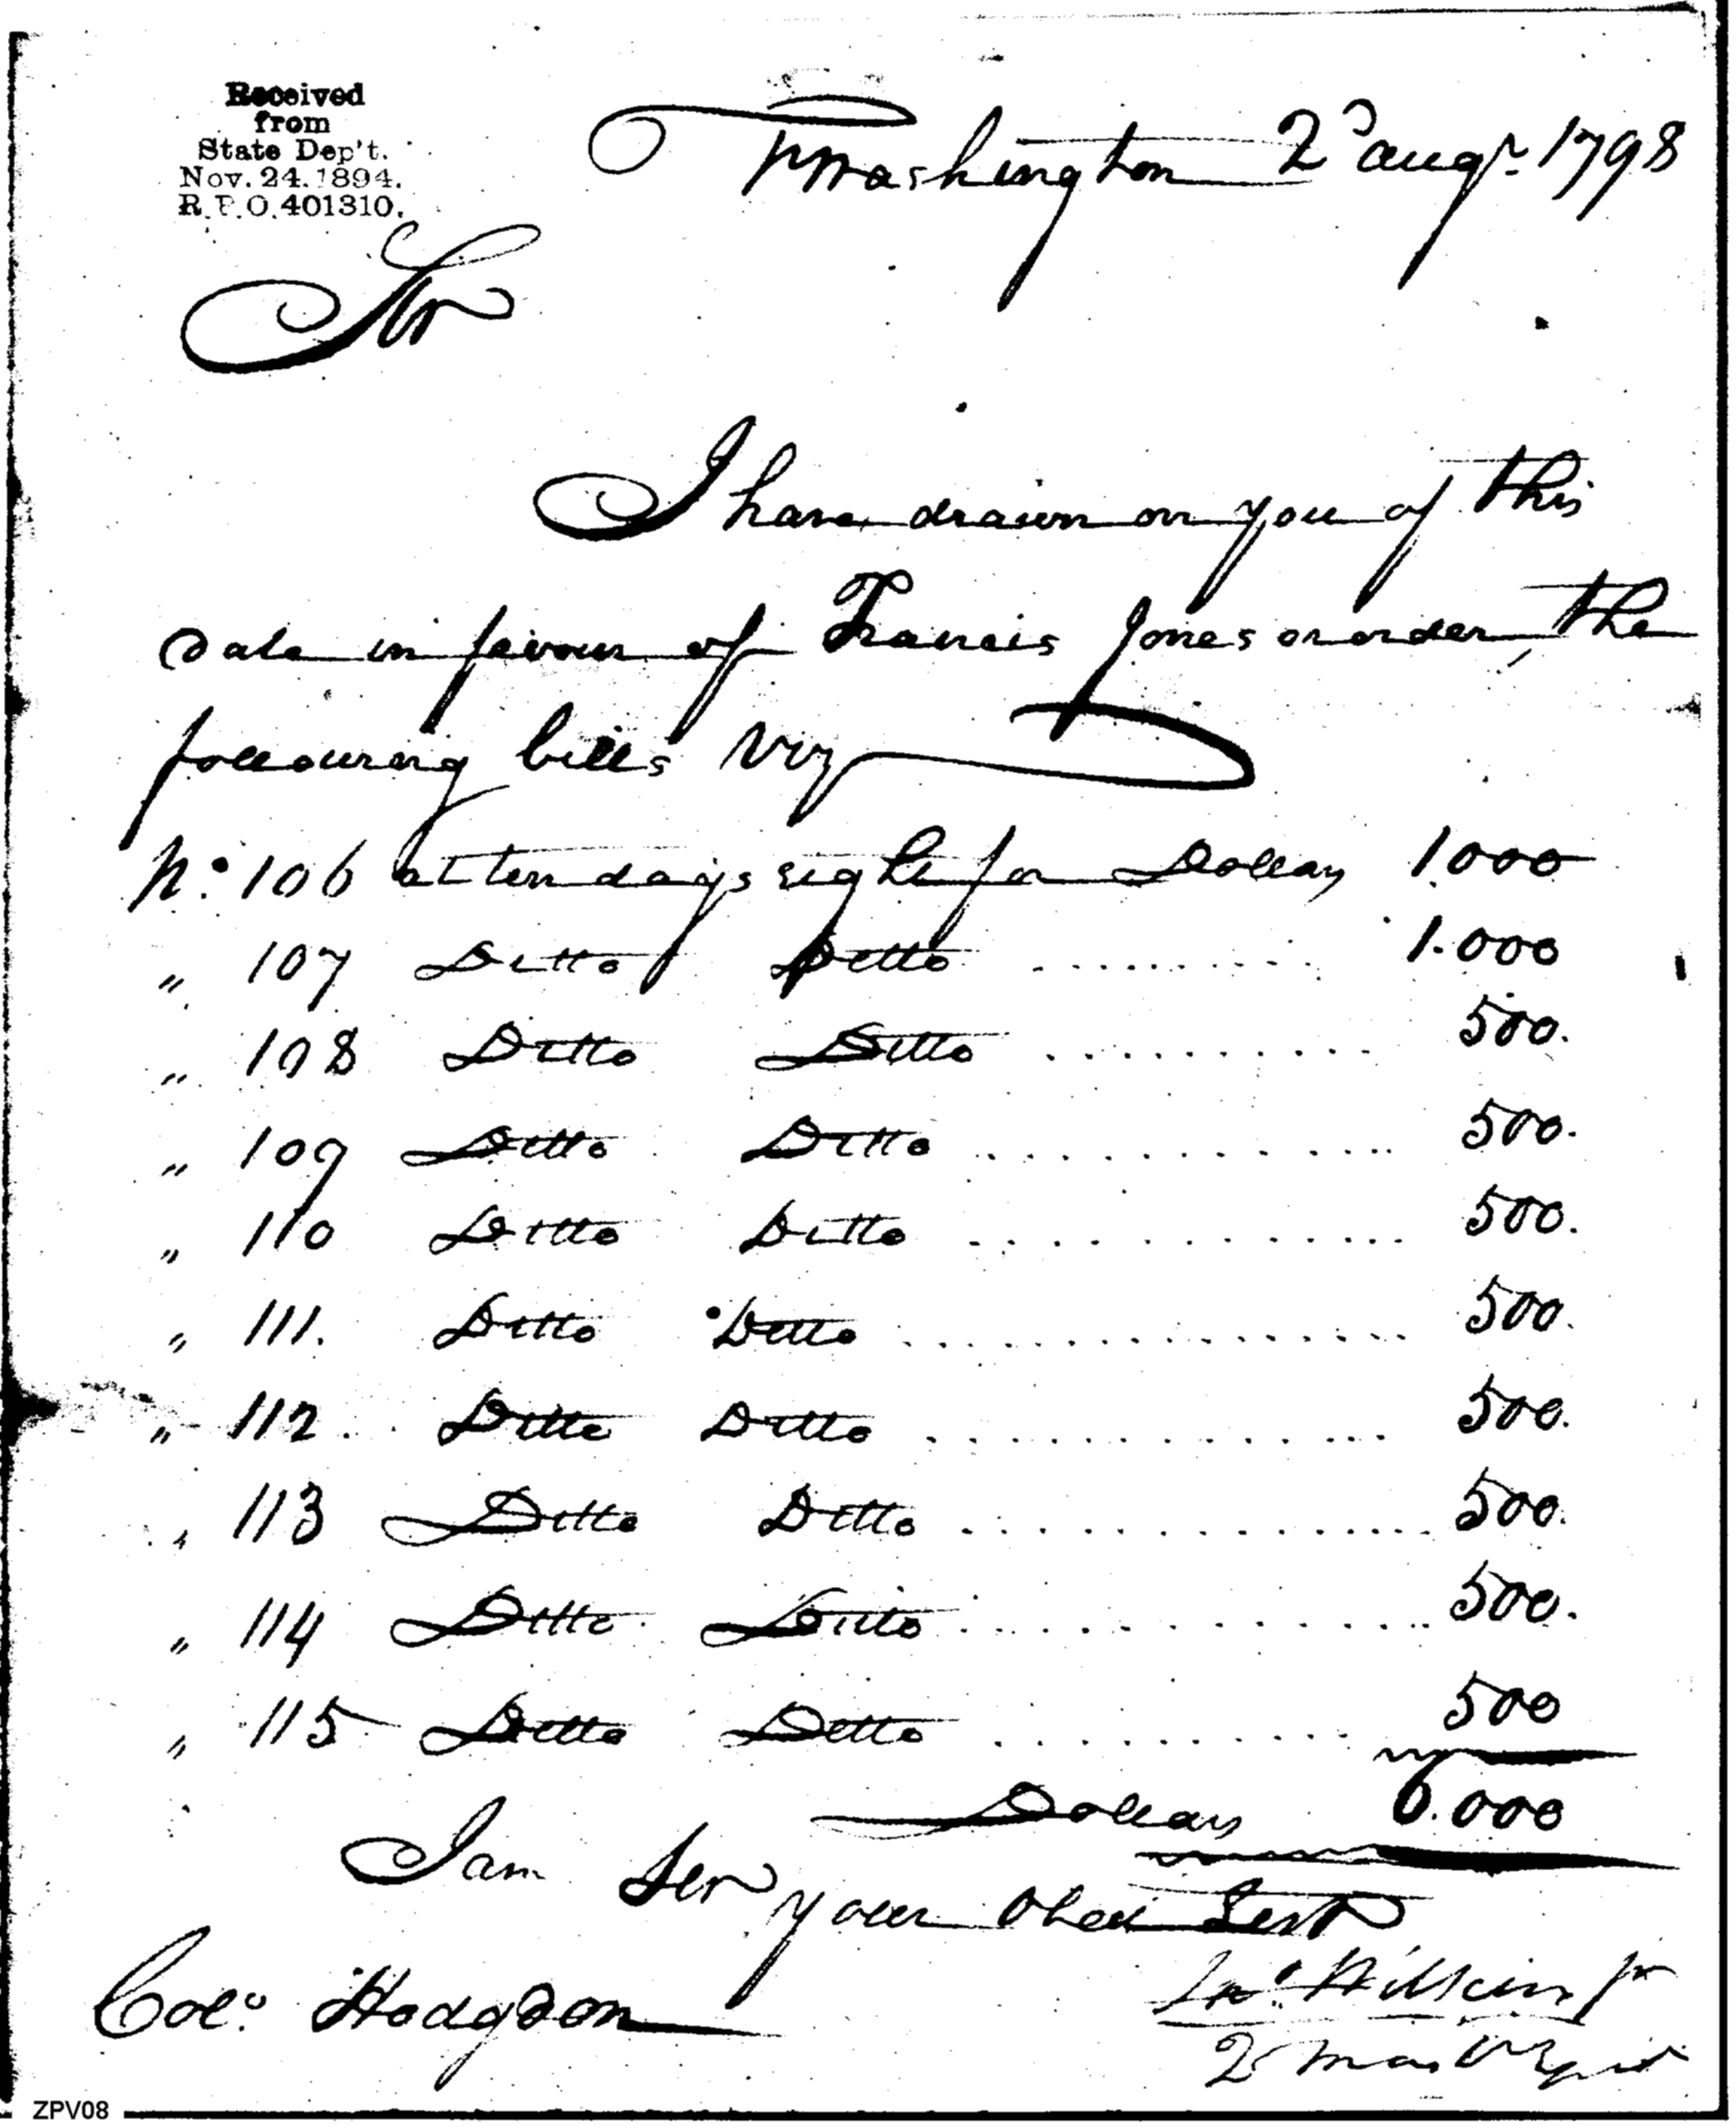 Received
from
State Dep't.
Nov. 24. 1894.
R.P.O. 401310.
Washington 2d augt. 1798
Sir
I have drawn on you of this
date in favour of Francis Jones or order, the
following bills Viz
No. 106 at ten days sight for Dollars 1000
" 107 Ditto Ditto .......... 1.000
" 108 Ditto Ditto .......... 500.
" 109 Ditto Ditto .......... 500.
" 110 Ditto Ditto .......... 500.
" 111. Ditto Ditto .......... 500.
" 112 Ditto Ditto .......... 500.
" 113 Ditto Ditto .......... 500.
" 114 Ditto Ditto .......... 500.
" 115 Ditto Ditto .......... 500
Dollars 6.000
I am Sir
your Obed Servt
Jno. Wilkins Jr
Colo. Hodgdon
ZPV08